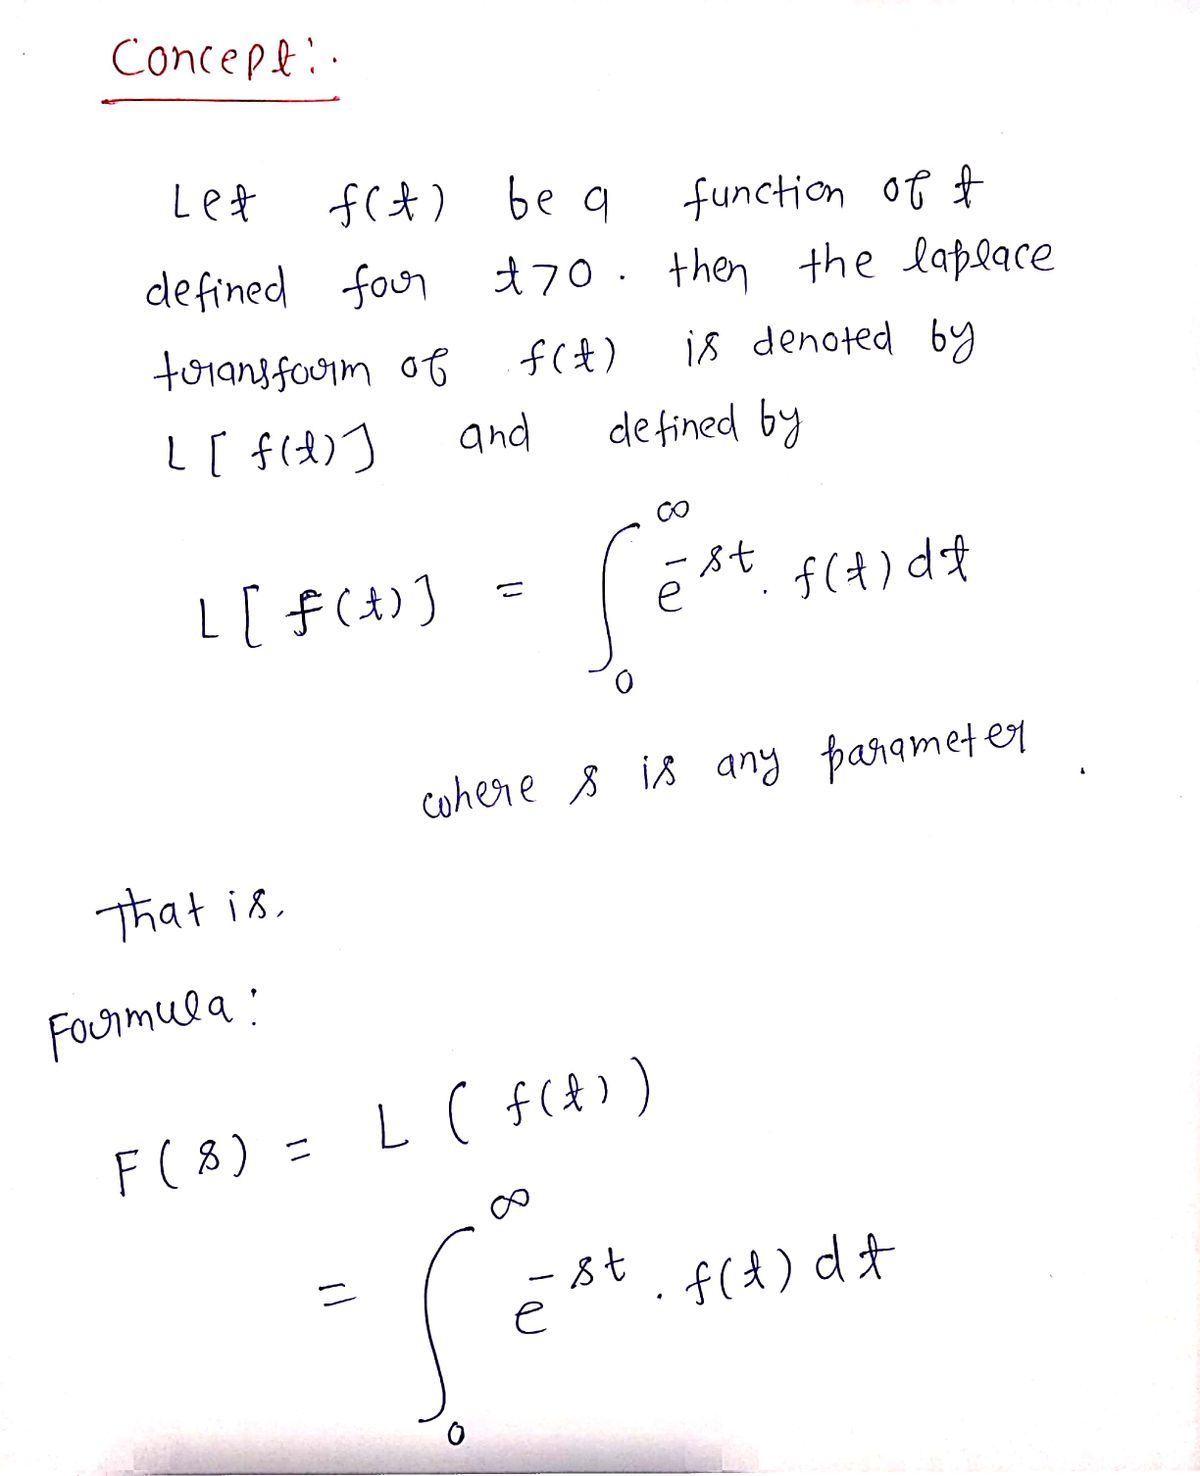 Concept:.
Let f(t) be a function of t
defined for t>0. then the laplace
transform of f(t) is denoted by
L[f(t)] and defined by
L[f(t)] = ∫₀^∞ e^-st . f(t) dt
where s is any parameter.
That is,
Formula:
F(s) = L(f(t))
= ∫₀^∞ e^-st . f(t) dt